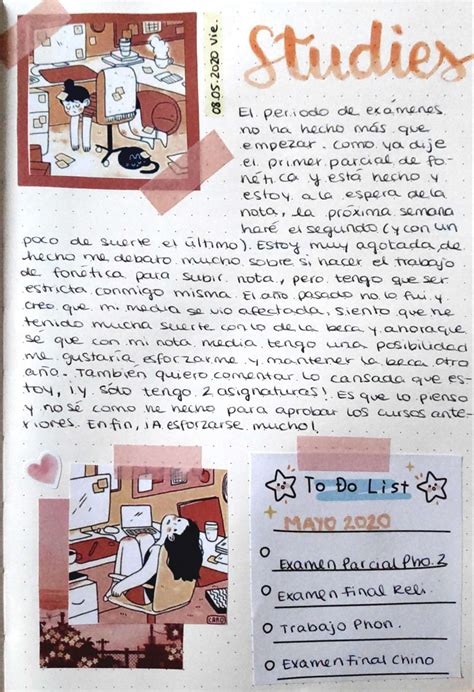 08.05.2020 Vie.
Studies
El periodo de exámenes
no ha hecho más que
empezar. Como ya dije
el primer parcial de fo-
nética ya está hecho y
estoy a la espera de la
nota, la próxima semana
haré el segundo (y con un
poco de suerte el último). Estoy muy agotada, de
hecho me debato mucho sobre si hacer el trabajo
de fonética para subir nota, pero tengo que ser
estricta conmigo misma. El año pasado no lo fui y
creo que mi media se vio afectada, siento que he
tenido mucha suerte con lo de la beca y ahora que
sé que con mi nota media tengo una posibilidad
me gustaría esforzarme y mantener la beca otro
año. También quiero comentar lo cansada que es-
toy, ¡y sólo tengo 2 asignaturas! Es que lo pienso
y no sé como he hecho para aprobar los cursos ante-
riores. En fin, ¡A esforzarse mucho!
To Do List
MAYO 2020
Examen Parcial Pho. 2
Examen Final Reli.
Trabajo Phon.
Examen Final Chino
CARO